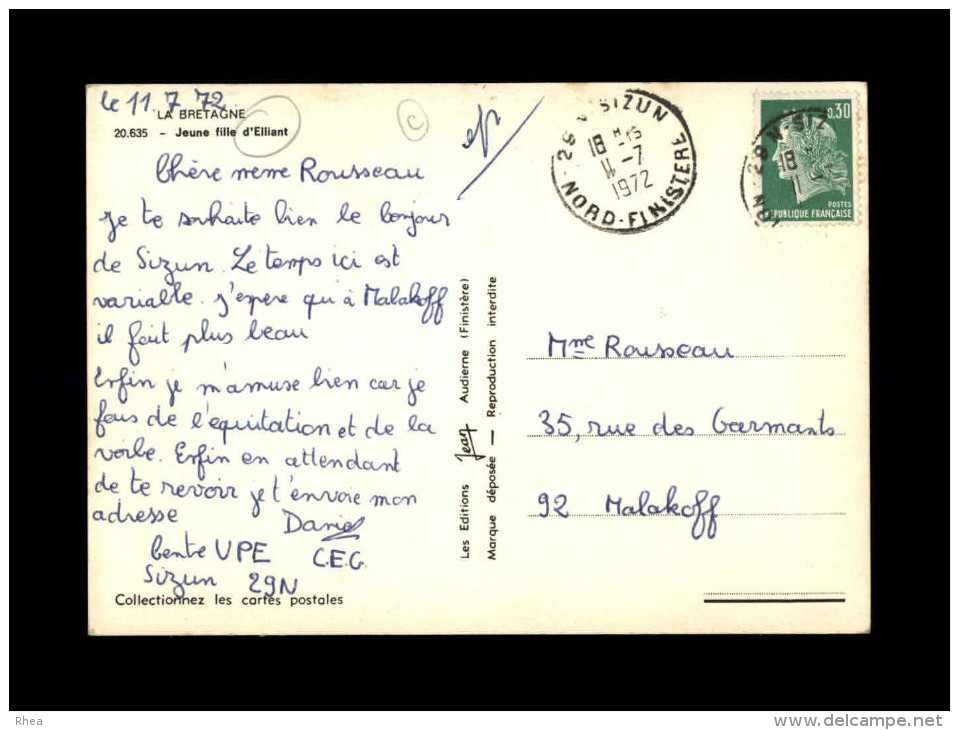 le 11.7 72
LA BRETAGNE
20.635 - Jeune fille d'Elliant
Chère meme Rousseau
je te souhaite bien le bonjour
de Sizun. Le temps ici est
variable. j'espere qui à Malakoff
il fait plus beau
Enfin je m'amuse bien car je
fais de l'equitation et de la
voile. Enfin en attendant
de te revoir je t'envoie mon
adresse
Daniel
Centre UPE C.E.G.
Sizun 29N
Collectionnez les cartes postales
Les Editions Jean Audierne (Finistère)
Marque déposée — Reproduction interdite
29 N SIZUN
18 H 15
11-7
1972
NORD-FINISTERE
29 N SIZ
18 H
0,30
POSTES
REPUBLIQUE FRANÇAISE
Mme Rousseau
35, rue des Garmants
92 Malakoff
Rhea
www.delcampe.net